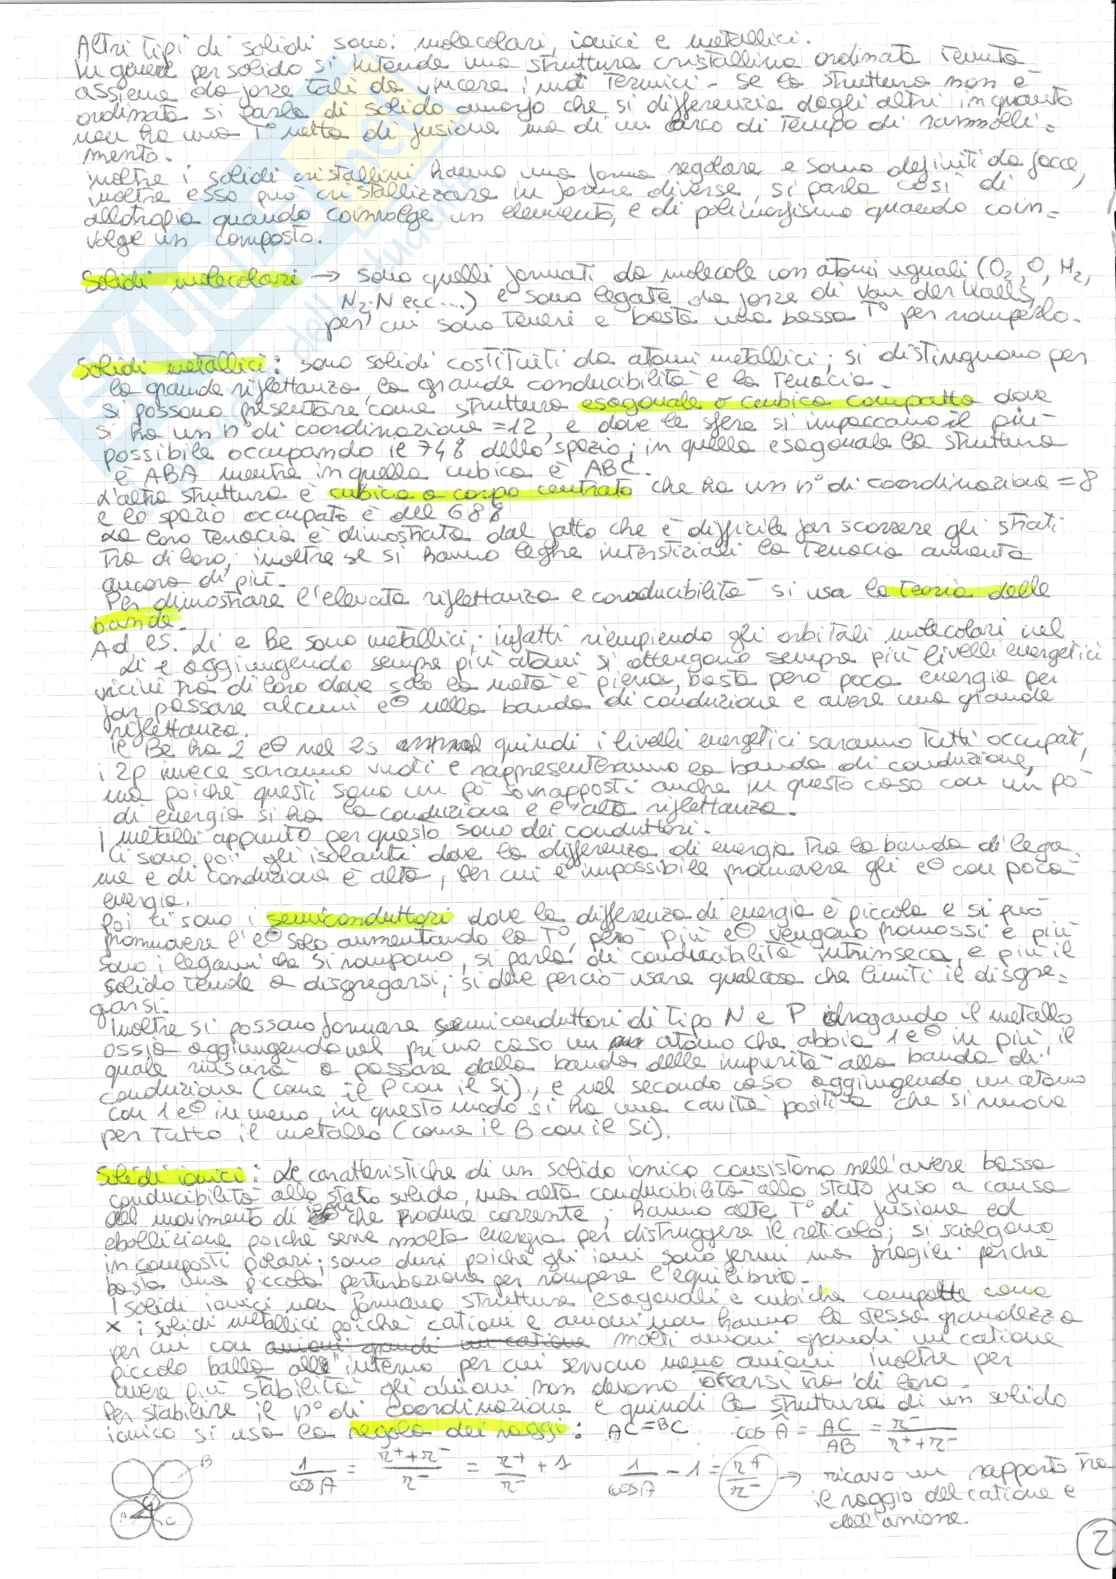 Altri tipi di solidi sono: molecolari, ionici e metallici.
In genere per solido si intende una struttura cristallina ordinata tenuta
assieme da forze tali da vincere i moti termici - se la struttura non è
ordinata si parla di solido amorfo che si differenzia dagli altri in quanto
non ha una T° netta di fusione ma di un arco di tempo di rammolli=
mento.
inoltre i solidi cristallini hanno una forma regolare e sono definiti da facce,
inoltre esso può cristallizzare in forme diverse, si parla così di
allotropia quando coinvolge un elemento, e di polimorfismo quando coin=
volge un composto.
Solidi molecolari → sono quelli formati da molecole con atomi uguali (O2 O, H2,
N2:N ecc....) e sono legate da forze di Van der Waals,
per cui sono teneri e basta una bassa T° per romperlo.
Solidi metallici: sono solidi costituiti da atomi metallici; si distinguono per
la grande riflettanza, la grande conducibilità e la tenacia.
si possono presentare come struttura esagonale o cubica compatta dove
si ha un n° di coordinazione =12, e dove le sfere si impaccano il più
possibile occupando il 74% dello spazio; in quella esagonale la struttura
è ABA mentre in quella cubica è ABC.
L'altra struttura è cubica a corpo centrato che ha un n° di coordinazione =8
e lo spazio occupato è del 68%
La loro tenacia è dimostrata dal fatto che è difficile far scorrere gli strati
tra di loro; inoltre se si hanno leghe interstiziali la tenacia aumenta
ancora di più.
Per dimostrare l'elevata riflettanza e conducibilità si usa la teoria delle
bande.
Ad es. Li e Be sono metallici; infatti riempiendo gli orbitali molecolari nel
Li e aggiungendo sempre più atomi si ottengono sempre più livelli energetici
vicini tra di loro dove solo la metà è piena, basta però poca energia per
far passare alcuni e⊖ nella banda di conduzione e avere una grande
riflettanza.
il Be ha 2 e⊖ nel 2s quindi i livelli energetici saranno tutti occupati,
i 2p invece saranno vuoti e rappresenteranno la banda di conduzione,
ma poiché questi sono un po' sovrapposti anche in questo caso con un po'
di energia si ha la conduzione e è alta riflettanza.
i metalli appunto per questo sono dei conduttori.
Ci sono poi gli isolanti dove la differenza di energia tra la banda di lega
me e di conduzione è alta, per cui è impossibile promuovere gli e⊖ con poca
energia.
Poi ci sono i semiconduttori dove la differenza di energia è piccola e si può
promuovere l'e⊖ solo aumentando la T°, però più e⊖ vengono promossi e più
sono i legami che si rompono, si parla di conducibilità intrinseca, e più il
solido tende a disgregarsi; si deve perciò usare qualcosa che limiti il disgre=
garsi.
Inoltre si possono formare semiconduttori di tipo N e P drogando il metallo
ossia aggiungendo nel primo caso un atomo che abbia 1 e⊖ in più il
quale riuscirà a passare dalla banda delle impurità alla banda di
conduzione (come il P con il Si), e nel secondo caso aggiungendo un atomo
con 1 e⊖ in meno, in questo modo si ha una cavità positiva che si muove
per tutto il metallo (come il B con il Si).
Solidi ionici: Le caratteristiche di un solido ionico consistono nell'avere bassa
conducibilità allo stato solido, ma alta conducibilità allo stato fuso a causa
del movimento di ioni che produce corrente; hanno alte T° di fusione ed
ebollizione poiché serve molta energia per distruggere il reticolo; si sciolgono
in composti polari; sono duri poiché gli ioni sono fermi ma fragili perché
basta una piccola perturbazione per rompere l'equilibrio.
I solidi ionici non formano strutture esagonali e cubiche compatte come
x i solidi metallici poiché cationi e anioni non hanno la stessa grandezza
per cui con anioni grandi un catione molti anioni grandi un catione
piccolo balla all'interno per cui servono meno anioni inoltre per
avere più stabilità gli anioni non devono toccarsi tra di loro.
Per stabilire il n° di coordinazione e quindi la struttura di un solido
ionico si usa la regola dei raggi: AC=BC cos Â = AC/AB = r⁻/(r⁺+r⁻)
1/cosA = (r⁺+r⁻)/r⁻ = r⁺/r⁻ + 1 1/cosA - 1 = r⁺/r⁻ → ricavo un rapporto tra
il raggio del catione e
dell'anione.
B
A C
2